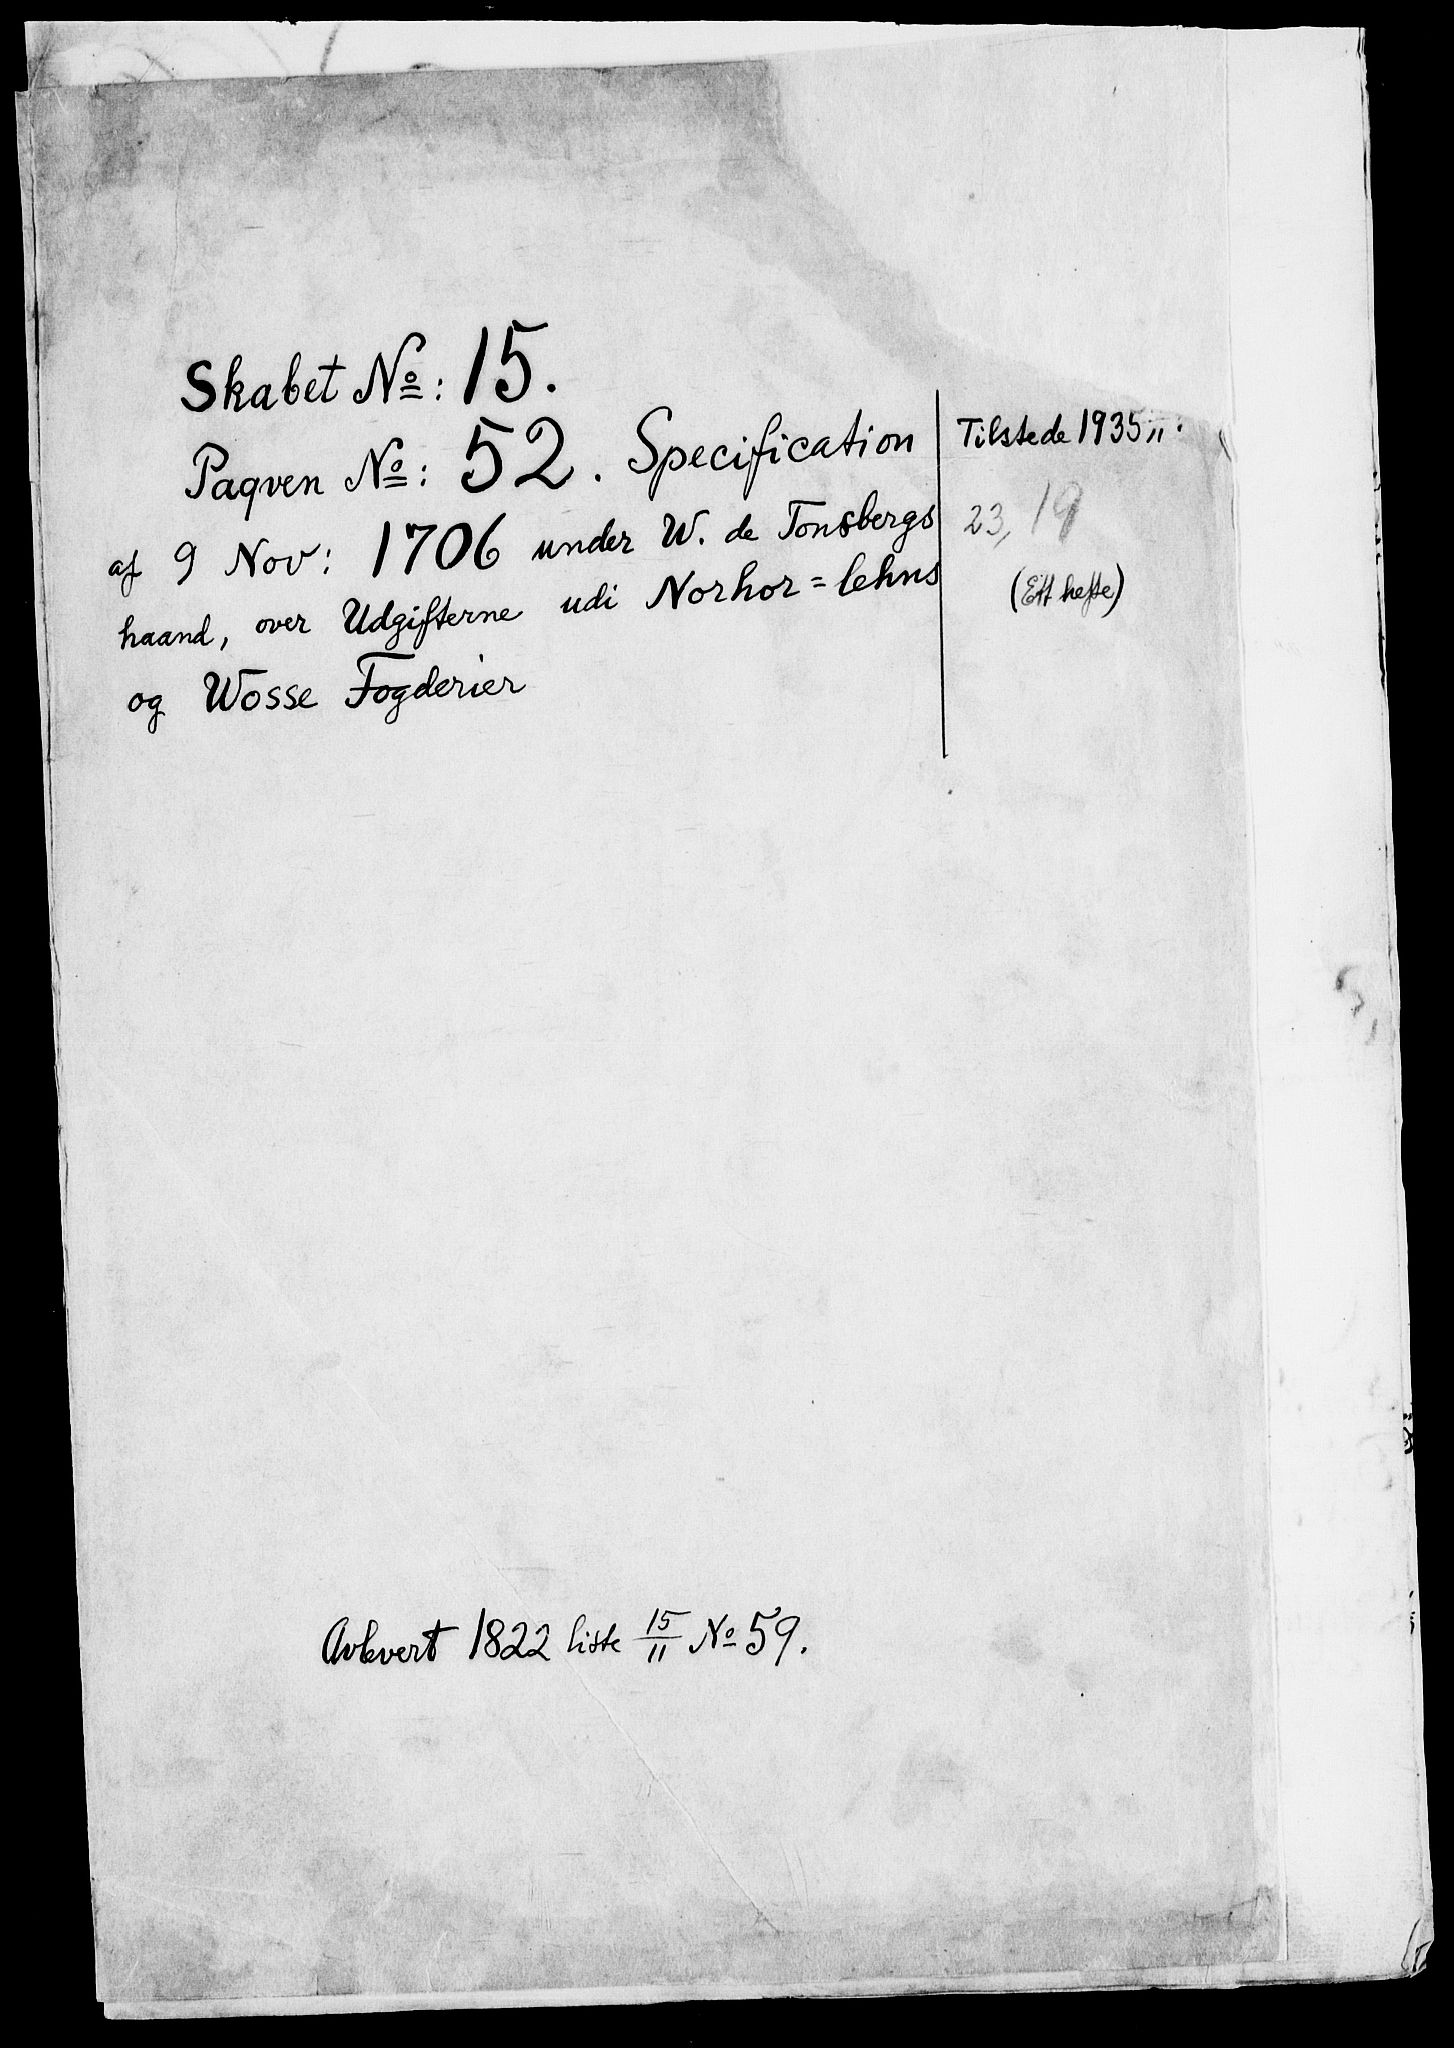 Skabet No: 15.
Paqven No: 52. Specification
af 9 Nov: 1706 under W. de Tonsbergs
haand, over Udgifterne udi Norhor=lehns
og Wosse Fogderier
Tilstede 1935
23, 19
(Ett hefte)
Avlevert 1822 liste 15/11 No 59.